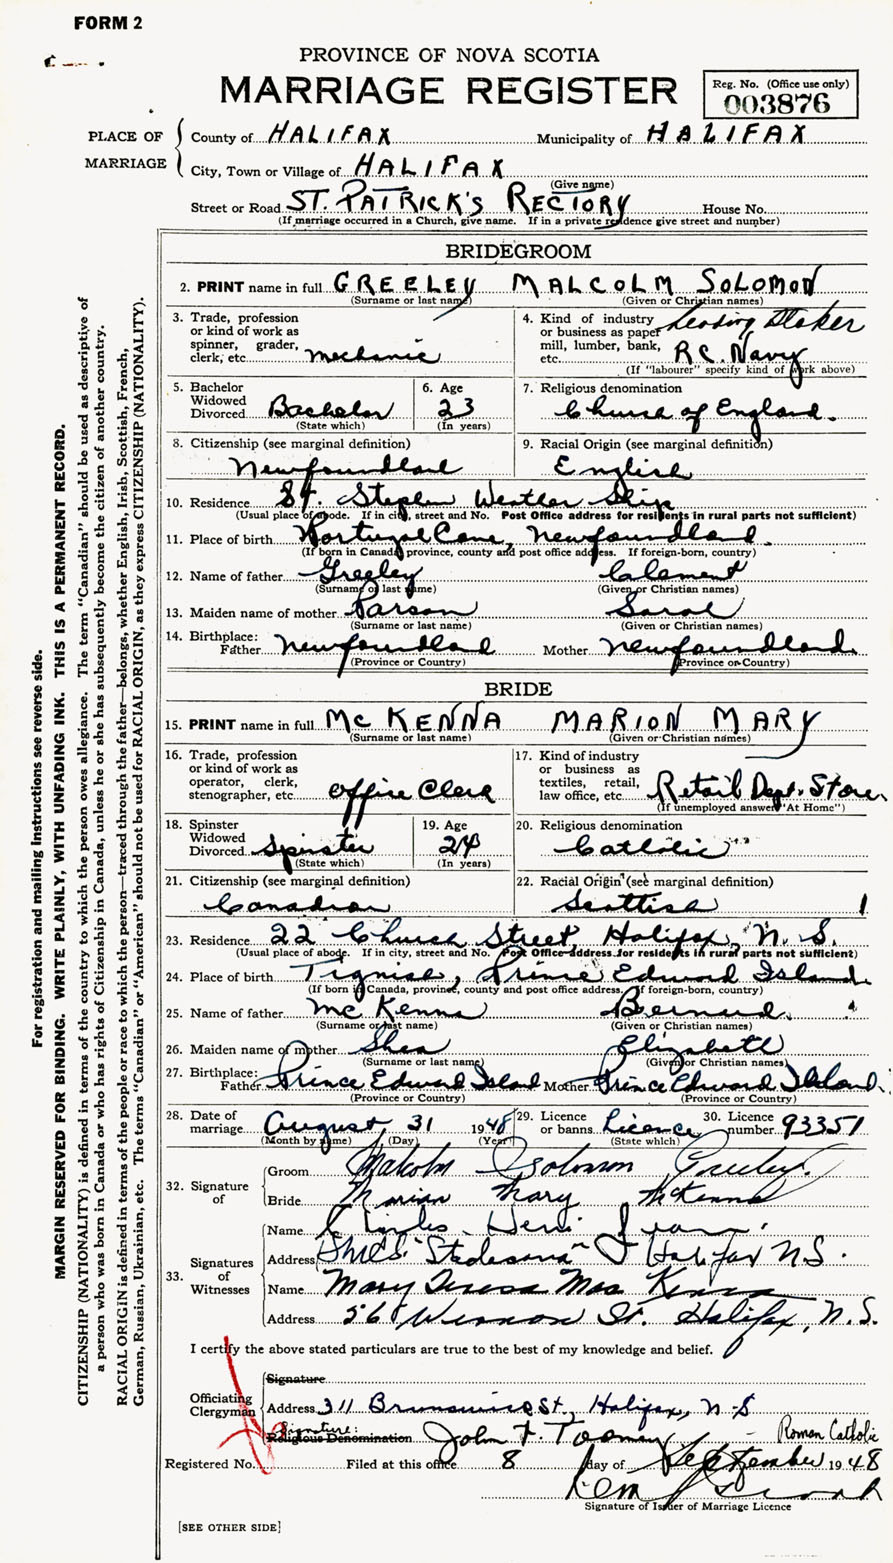 FORM 2
PROVINCE OF NOVA SCOTIA
MARRIAGE REGISTER
Reg. No. (Office use only)
003876
PLACE OF MARRIAGE
County of HALIFAX Municipality of HALIFAX
City, Town or Village of HALIFAX
(Give name)
Street or Road ST. PATRICK'S RECTORY House No.
(If marriage occurred in a Church, give name. If in a private residence give street and number)
BRIDEGROOM
2. PRINT name in full GREELEY MALCOLM SOLOMON
(Surname or last name) (Given or Christian names)
3. Trade, profession or kind of work as spinner, grader, clerk, etc. mechanic
4. Kind of industry or business as paper mill, lumber, bank, etc. Leading Stoker R.C. Navy
(If "labourer" specify kind of work above)
5. Bachelor Widowed Divorced Bachelor
(State which)
6. Age 23
(In years)
7. Religious denomination Church of England.
8. Citizenship (see marginal definition) Newfoundland
9. Racial Origin (see marginal definition) English
10. Residence St. Stephen Weather Ship
(Usual place of abode. If in city, street and No. Post Office address for residents in rural parts not sufficient)
11. Place of birth Portugal Cove, Newfoundland.
(If born in Canada, province, county and post office address. If foreign-born, country)
12. Name of father Greeley Clement
(Surname or last name) (Given or Christian names)
13. Maiden name of mother Parson Sarah
(Surname or last name) (Given or Christian names)
14. Birthplace: Father Newfoundland Mother Newfoundland.
(Province or Country) (Province or Country)
BRIDE
15. PRINT name in full McKENNA MARION MARY
(Surname or last name) (Given or Christian names)
16. Trade, profession or kind of work as operator, clerk, stenographer, etc. Office Clerk
17. Kind of industry or business as textiles, retail, law office, etc. Retail Dept. Store
(If unemployed answer "At Home")
18. Spinster Widowed Divorced Spinster
(State which)
19. Age 24
(In years)
20. Religious denomination Catholic
21. Citizenship (see marginal definition) Canadian
22. Racial Origin (see marginal definition) Scottish
23. Residence 22 Church Street, Halifax, N.S.
(Usual place of abode. If in city, street and No. Post Office address for residents in rural parts not sufficient)
24. Place of birth Tignish, Prince Edward Island
(If born in Canada, province, county and post office address. If foreign-born, country)
25. Name of father McKenna Bernard
(Surname or last name) (Given or Christian names)
26. Maiden name of mother Shea Elizabeth
(Surname or last name) (Given or Christian names)
27. Birthplace: Father Prince Edward Island Mother Prince Edward Island
(Province or Country) (Province or Country)
28. Date of marriage August 31 1948
(Month by name) (Day) (Year)
29. Licence or banns Licence
(State which)
30. Licence number 93351
32. Signature of
Groom Malcolm Solomon Greeley.
Bride Marion Mary McKenna
33. Signatures of Witnesses
Name Charles Henri
Address Halifax N.S.
Name Mary Teresa Mac Kenna
Address 56 Vernon St. Halifax, N.S.
I certify the above stated particulars are true to the best of my knowledge and belief.
Officiating Clergyman
Signature
Address 311 Brunswick St., Halifax, N.S
Signature:
Religious Denomination John F. Toomey Roman Catholic
Registered No. Filed at this office 8 day of September 1948
Signature of Issuer of Marriage Licence
[SEE OTHER SIDE]
For registration and mailing instructions see reverse side.
MARGIN RESERVED FOR BINDING. WRITE PLAINLY, WITH UNFADING INK. THIS IS A PERMANENT RECORD.
CITIZENSHIP (NATIONALITY) is defined in terms of the country to which the person owes allegiance. The term "Canadian" should be used as descriptive of
a person who was born in Canada or who has rights of Citizenship in Canada, unless he or she has subsequently become the citizen of another country.
RACIAL ORIGIN is defined in terms of the people or race to which the person—traced through the father—belongs, whether English, Irish, Scottish, French,
German, Russian, Ukrainian, etc. The terms "Canadian" or "American" should not be used for RACIAL ORIGIN, as they express CITIZENSHIP (NATIONALITY).